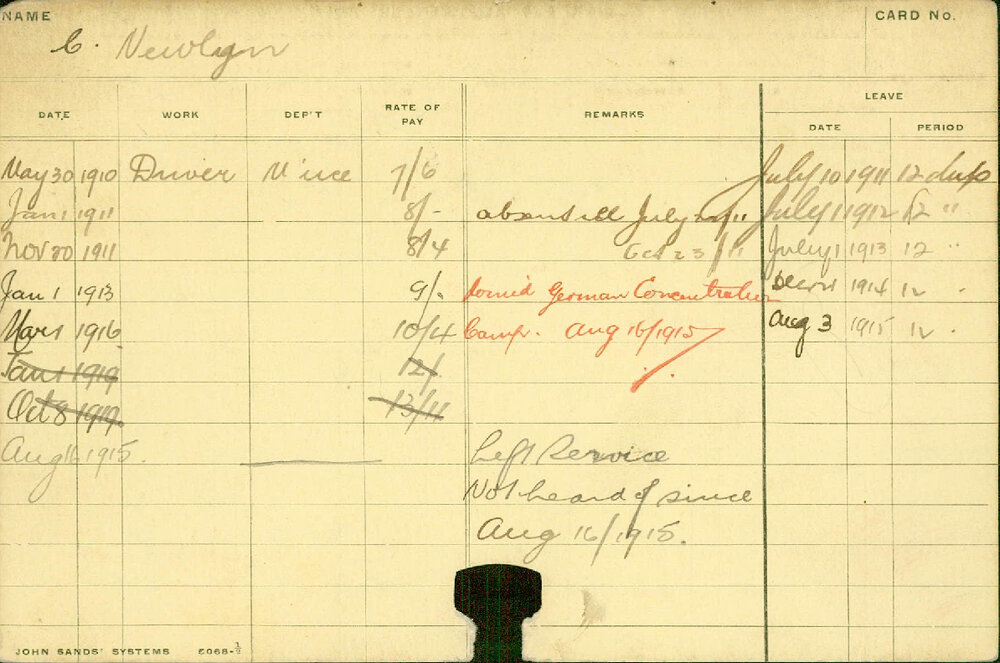 NAME
CARD No.
C. Newlyn
LEAVE
DATE WORK DEP'T RATE OF PAY REMARKS
DATE PERIOD
May 30 1910 Driver 7/6 July 10 1911 12 days
Jan 1 1911 8/- absent ill July /11 July 1 1912 12 "
Nov 30 1911 8/4 Oct 23 /11 July 1 1913 12 "
Jan 1 1913 9/- Joined German Concentration 1914 12 "
Mar 1 1916 10/4 Camp. Aug 16/1915 Aug 3 1915 12 "
Jan 1 1919 12/
Oct 8 1919 13/11
Aug 16 1915. Left Service
Not heard of since
Aug 16/1915.
JOHN SANDS' SYSTEMS 5068-½